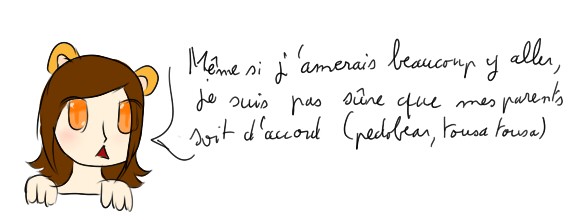 Même si j'amerais beaucoup y aller,
je suis pas sûre que mes parents
soit d'accord (pedobear, tousa tousa)